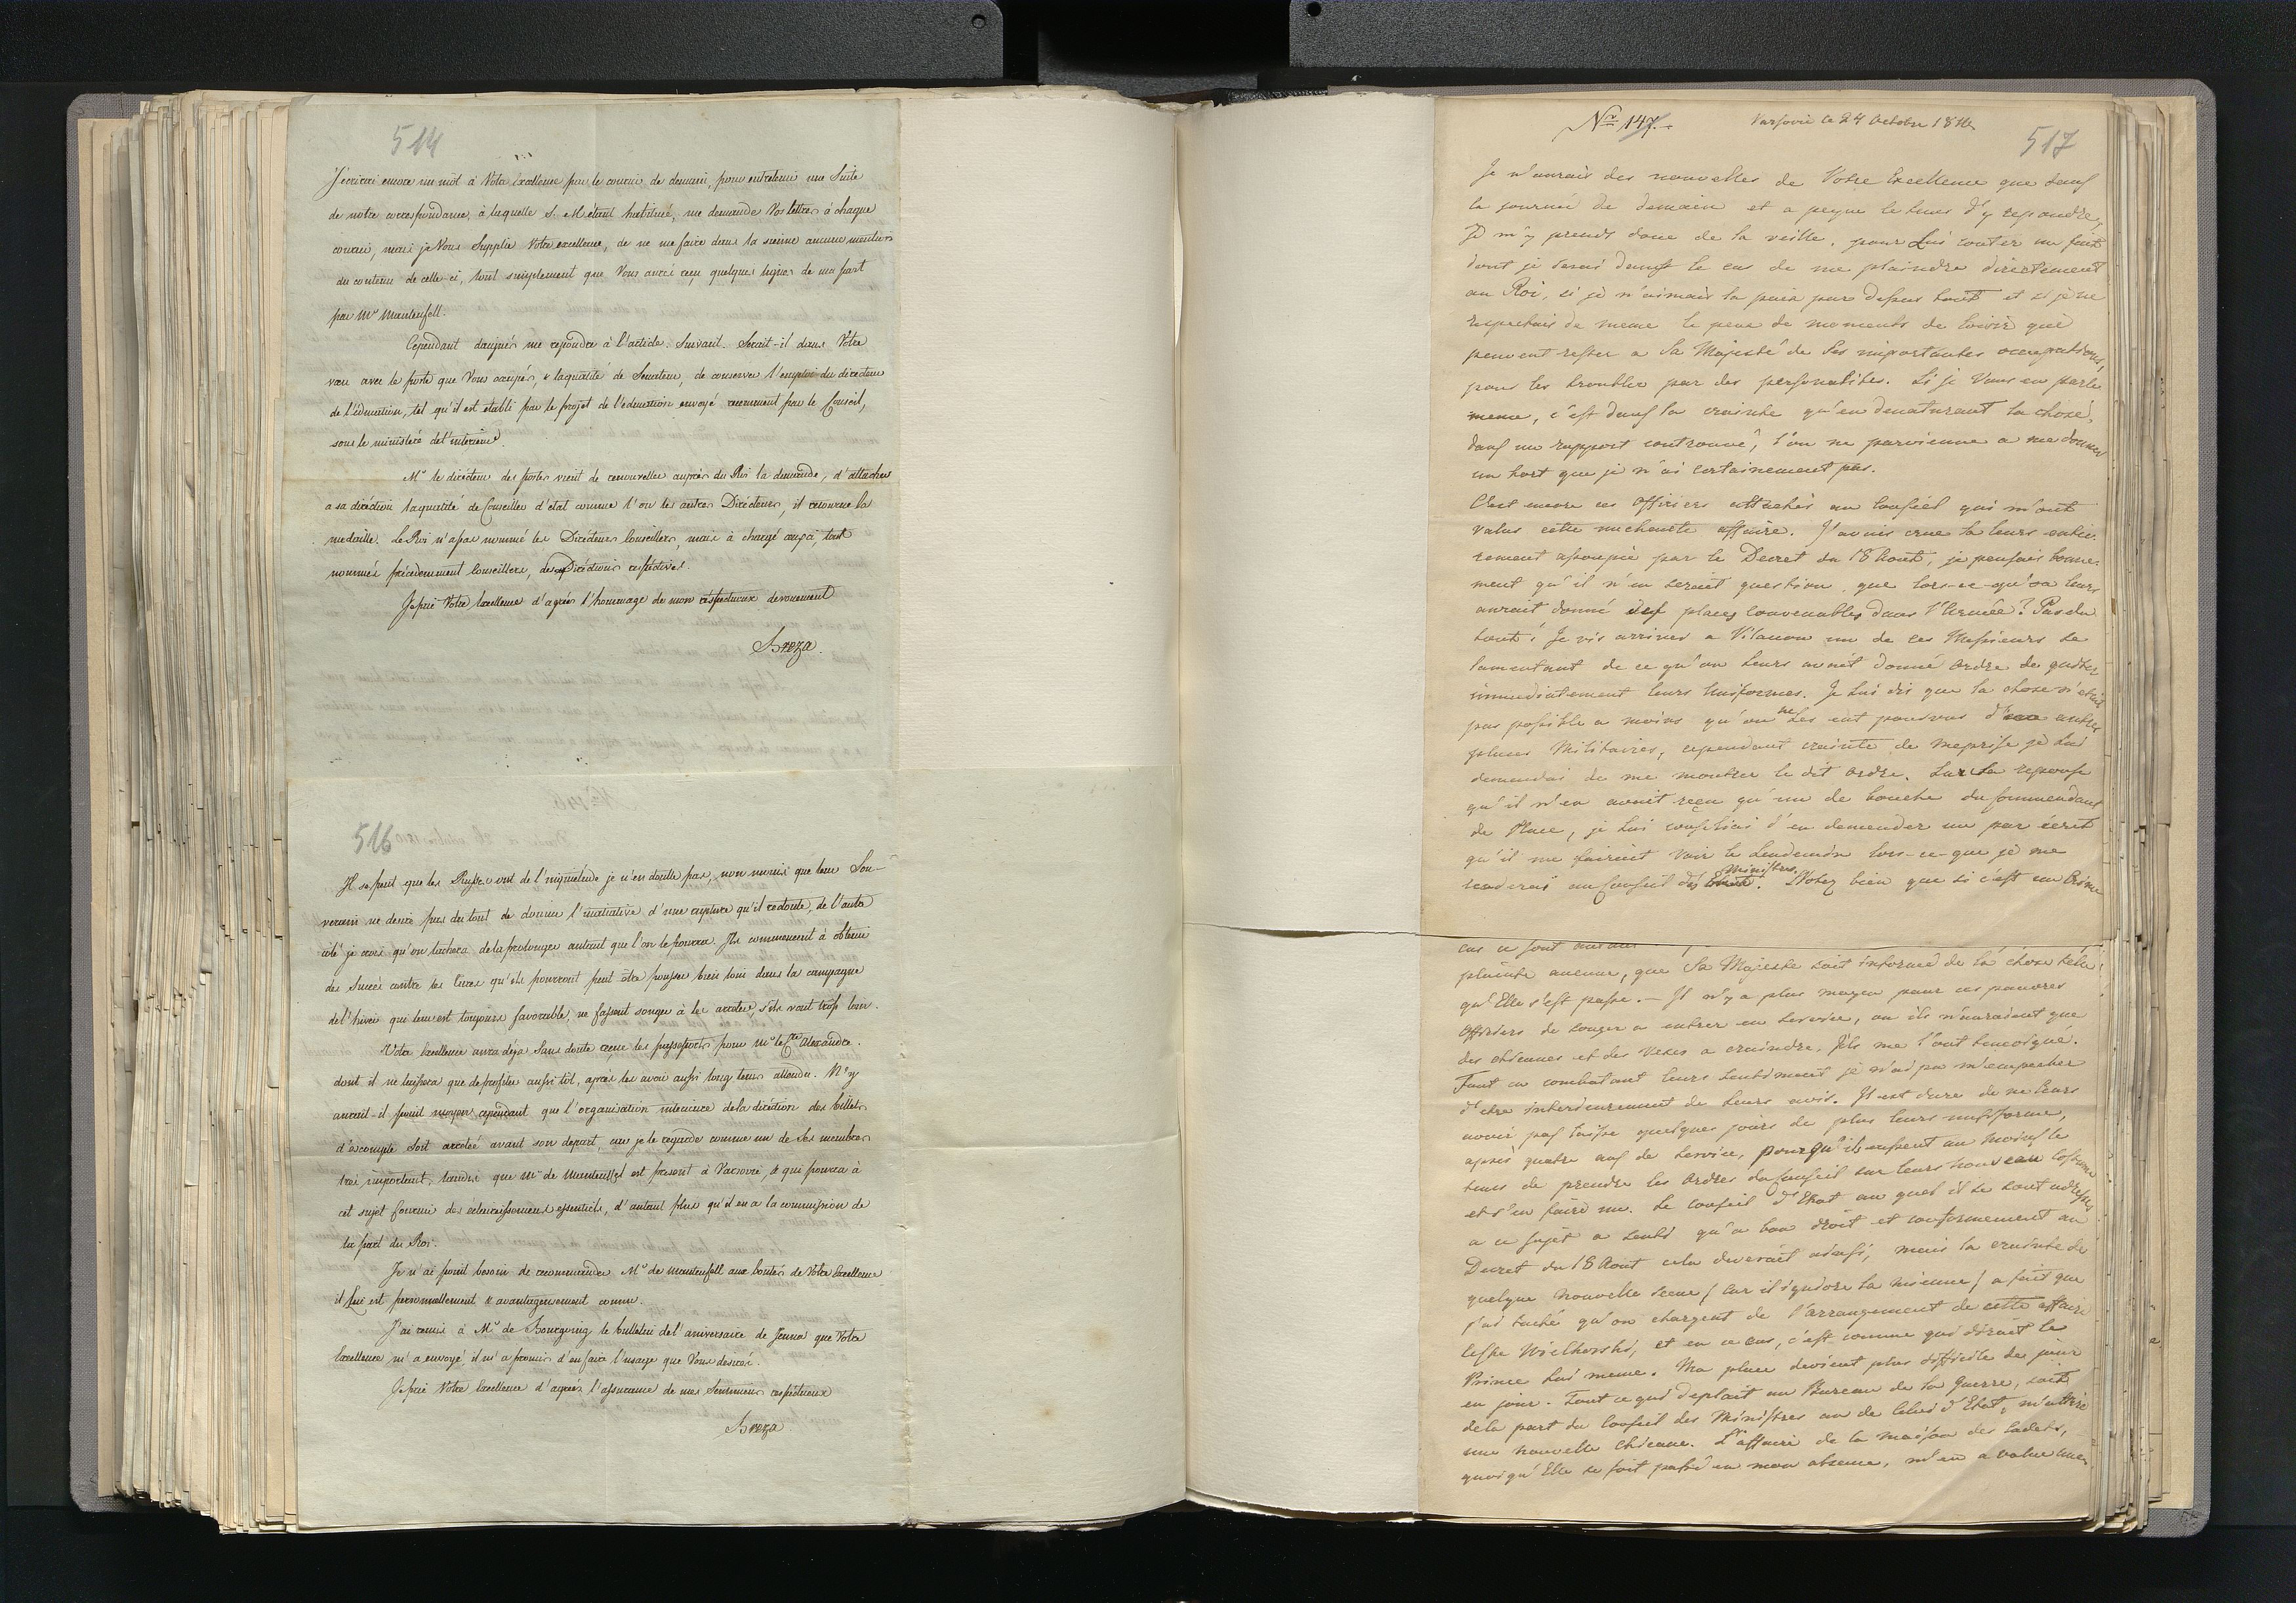 514
J'écrirai encore un mot à Votre Excellence par le courier de demain, pour entretenir une Suite
de notre correspondance, à laquelle S. M. étant habitué, me demande Vos lettres à chaque
courier, mais je Vous Supplie Votre excellence, de ne me faire dans la sienne aucune mention
du contenu de celle-ci, tout simplement que Vous aurié reçu quelques lignes de ma part
par Mr Manteufell.
Cependant daignés me repondre à l'article Suivant. Serait-il dans Votre
vœu avec le poste que Vous occupés, & la qualité de Senateur, de conserver l'emploi du directeur
de l'éducation, tel qu'il est établi par le projet de l'éducation envoyé recemment par le Conseil,
sous le ministère de l'interieur.
Mr le directeur des postes vient de renouveller auprès du Roi la demande, d'attacher
a sa direction la qualité de Conseiller d'état comme l'on les autres Directeurs, il retourne la
medaille. Le Roi n'a pas nommé les Directeurs Conseillers, mais à chargé ceux çi, tout
nommés précédemment Conseillers, des Directions respectives.
Je prie Votre Excellence d'agréer l'hommage de mon respectueux devouement
Breza.
516
Il se peut que les Russes ont de l'inquietude je n'en doute pas, non moins que leur Sou-
verain ne desire pas du tout de donner l'initiative d'une rupture qu'il redoute, de l'autre
côté je crois qu'on tachera de la prolonger autant que l'on le pourra. Ils commencent à obtenir
des Succès contre les Turcs qu'ils pourront peut être pousser bien loin dans la campagne
de l'hiver qui leur est toujours favorable, ne fassent songer à les arreter s'ils vont trop loin.
Votre Excellence aura déja Sans doute reçue les passeports pour Mr le Cte Alexandre.
dont il ne laissera que de profiter aussi tôt, après les avoir aussi long tems attendu. N'y
auroit-il point moyen cependant que l'organisation interieure de la direction des billets
d'escompte soit arretée avant son depart, car je le regarde comme un de Ses membres
très important, tandis que Mr de Manteuffel est présent à Varsovie, & qui pourra à
cet sujet fournir des éclaircissemens essentiels, d'autant plus qu'il en a la commission de
la part du Roi.
Je n'ai point besoin de recommander Mr de Manteufell aux bontés de Votre Excellence
il Lui est personnellement & avantageusement connu.
J'ai remis à Mr de Bourgoing le bulletin de l'aniversaire de Jenna que Votre
Excellence m'a envoyé, il m'a promis d'en faire l'usage que Vous desirés.
Je prie Votre Excellence d'agréer l'assurance de mes Sentimens respectueux
Breza
Nr 147.
Varsovie le 24 Octobre 1810
517
Je n'aurais des nouvelles de Votre Excellence que dans
la journée de demain et a peyne le tems d'y repondre,
Je m'y prends donc de la veille, pour Lui conter un fait
dont je serai dans le cas de me plaindre directement
au Roi, si je n'aimais la paix par dessus tout et si je ne
respectais de meme le peu de moments de loisir qui
peuvent rester a Sa Majesté de Ses importantes occupations,
pour les troubler par des personalités. Si je Vous en parle
meme, c'est dans la crainte qu'en denaturant la chose,
dans un rapport controuvé, l'on ne parvienne a me donner
un tort que je n'ai certainement pas.
C'est encore ces Officiers attachés au Conseil qui m'ont
valus cette mechante affaire. J'avais crue la leurs entie-
rement assoupie par le Decret du 18 Aout, je pensais bonne-
ment qu'il n'en seroit question, que lors-ce-qu'on leurs
auroit donné des places convenables dans l'Armée? Pas du
tout! Je vis arriver a Vilanow un de ces Messieurs se
lamentant de ce qu'on leurs avait donné ordre de quitter
immediatement leurs Uniformes. Je Lui dis que la chose n'etait
pas possible a moins qu'on ne Les eut pourvus d'autres
places Militaires, cependant crainte de meprise je Lui
demandai de me montrer le dit ordre. Sur La reponse
qu'il n'en avait reçu qu'un de bouche du Commendant
de Place, je Lui conseillai d'en demender un par écrit
qu'il me fairait voir le Lendemain lors-ce-que je me
rendrai au Conseil des Ministres. Notez bien que si c'est un Crime
cas ce sont
plainte aucune, que Sa Majesté soit informé de la chose telle
qu'Elle s'est passe. — Il n'y a plus moyen pour ces pauvres
Officiers de songer a entrer en Service, ou ils n'auraient que
des chicanes et des Vexes a craindre. Ils me l'ont temoigné.
Tout en combatant leurs Sentiment je n'ai pu m'empecher
d'etre interieurement de Leurs avis. Il est dure de ne leurs
avoir pas laisse quelques jours de plus leurs uniforme,
après quatre ans de service, pour qu'ils eussent au moins le
tems de prendre les Ordres du Conseil sur leurs nouveau Costume
et s'en faire un. Le Conseil d'Etat au quel il se sont adressés
a ce sujet a senti qu'a bon droit et conformement au
Decret du 18 Aout cela devrait ainsi, mais la crainte de
quelque nouvelle Scene / car il ignore la mienne / a fait que
j'ai taché qu'on chargeat de l'arrangement de cette affaire
Wielhorski, et en ce cas, c'est comme qui dirait le
Prince Lui meme. Ma place devient plus difficile de jour
en jour. Tout ce qui deplait au Bureau de la Guerre, soit
de la part du Conseil des Ministres ou de Celui d'Etat, m'attire
une nouvelle Chicane. L'affaire de la maison des Cadets,
quoiqu'Elle se soit passé en mon absence, m'en a value une